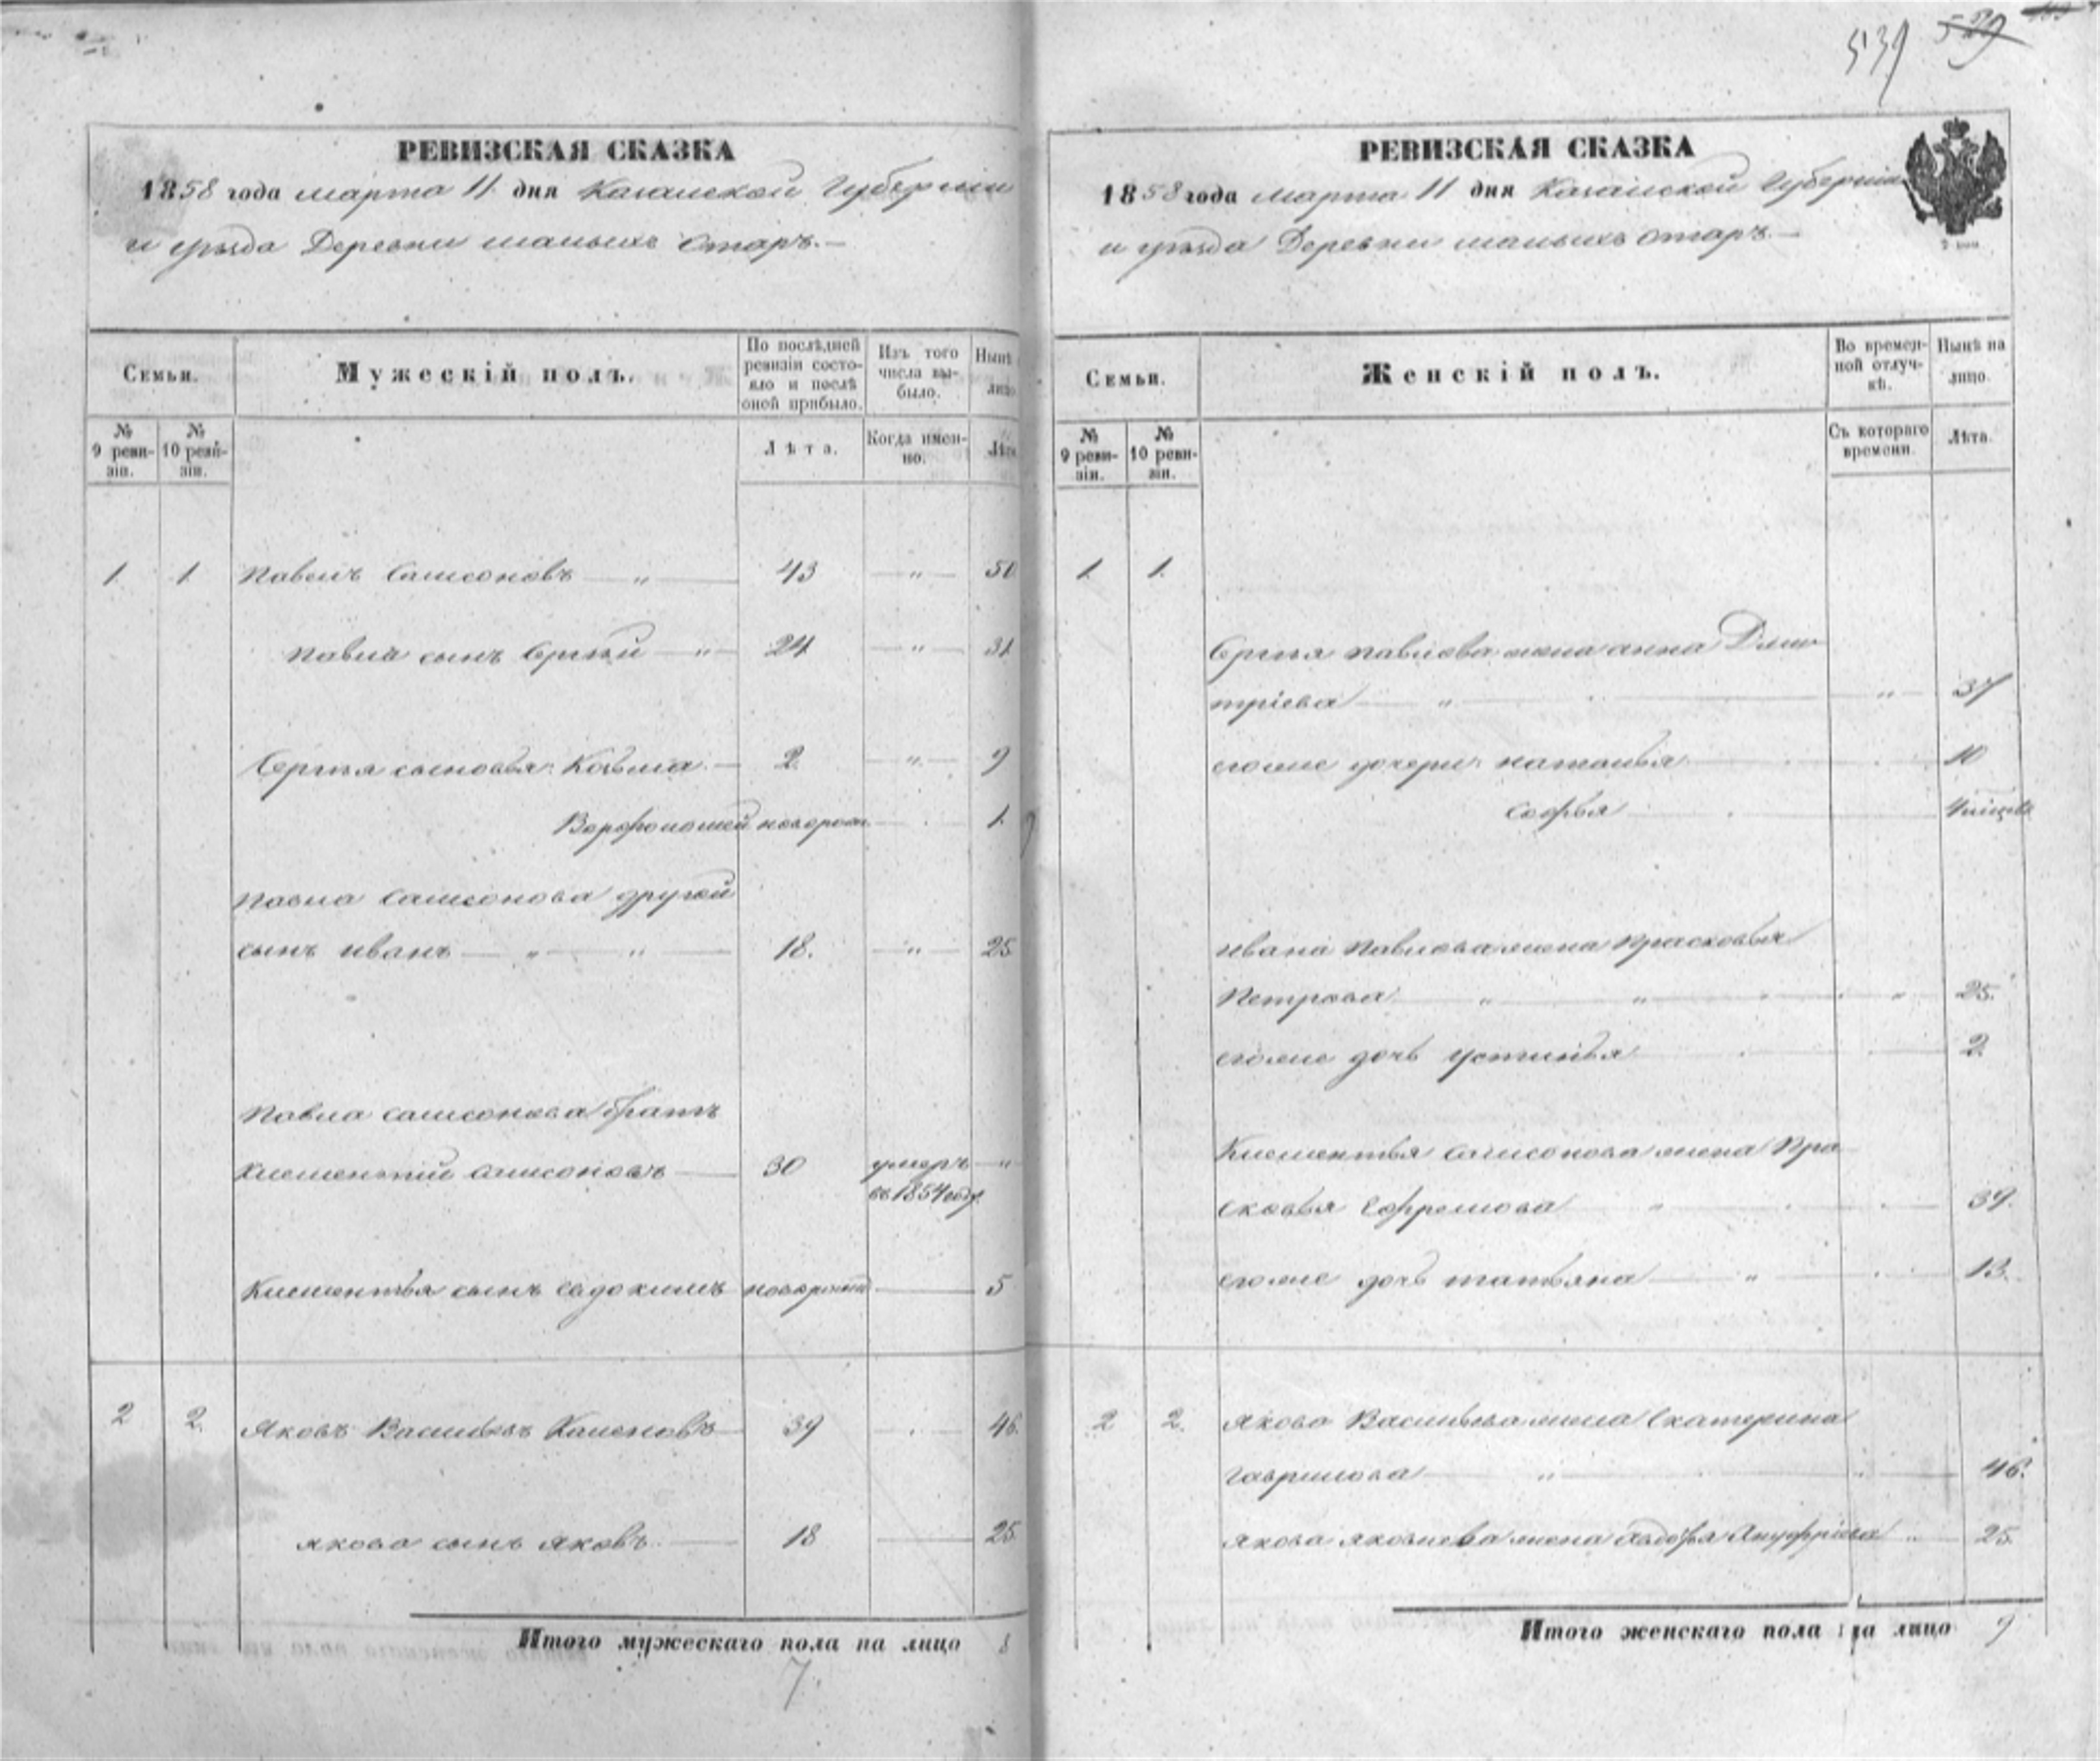 539 529
РЕВИЗСКАЯ СКАЗКА
1858 года марта 11 дня Казанской Губернии
и уѣзда Деревни малыхъ Отаръ.—
Семьи.
Мужескій полъ.
По послѣдней ревизіи состояло и послѣ оной прибыло.
Изъ того числа выбыло.
Нынѣ лицо
№ 9 ревизіи.
№ 10 ревизіи.
Лѣта.
Когда именно.
Лѣта
1. 1. Павелъ Самсоновъ — „ — 43 — „ — 50
Павла сынъ Сергѣй — „ — 24 — „ — 31
Сергѣя сыновья: Козьма — 2. — „ — 9
Ворфоломей новорож. 1.
Павла Самсонова другой
сынъ иванъ — „ — „ — 18. — „ — 25
Павла самсонова братъ
Клементій самсоновъ — 30 умеръ — „
въ 1854 году
Клементья сынъ евдокимъ новорожд — 5
2 2. Яковъ Васильевъ Каленовъ 39 — 46.
якова сынъ яковъ. — 18 — 25
Итого мужескаго пола на лицо 8
7.
РЕВИЗСКАЯ СКАЗКА
1858 года марта 11 дня Казанской Губерніи
и уѣзда Деревни малыхъ Отаръ.—
Семьи.
Женскій полъ.
Во временной отлучкѣ.
Нынѣ на лицо.
№ 9 ревизіи.
№ 10 ревизіи.
Съ котораго времени.
Лѣта.
1. 1.
Сергѣя павлова жена анна Дми
тріева — „ — „ — 37
егоже дочери: наталья 10
софья
ивана Павлова жена прасковья
Петрова „ „ „ 25.
егоже дочь устинья 2.
Клементья самсонова жена Пра
сковья Ефремова „ 39.
егоже дочь татьяна — „ 13.
2 2. якова Васильева жена Екатерина
гаврилова — „ — 46.
якова яковлева жена авдотья Ануфріева „ 25.
Итого женскаго пола на лицо 9